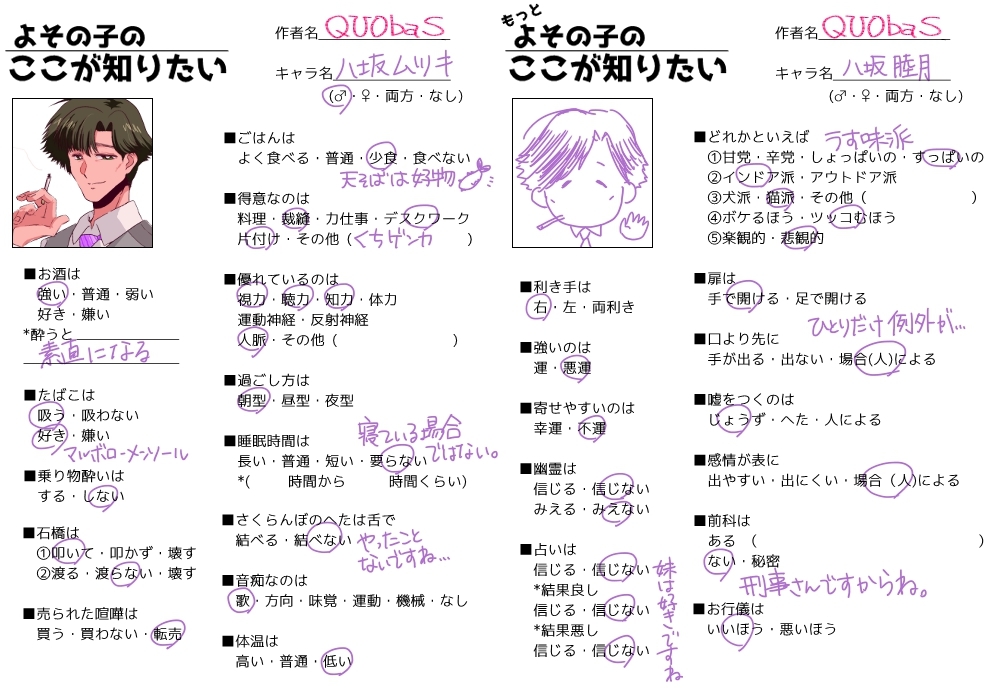 よその子の
ここが知りたい
作者名 QUObaS
キャラ名 八坂ムツキ
(♂・♀・両方・なし)
■お酒は
強い・普通・弱い
好き・嫌い
*酔うと
素直になる
■たばこは
吸う・吸わない
好き・嫌い
マルボローメンソール
■乗り物酔いは
する・しない
■石橋は
①叩いて・叩かず・壊す
②渡る・渡らない・壊す
■売られた喧嘩は
買う・買わない・転売
■ごはんは
よく食べる・普通・少食・食べない
天そばは好物
■得意なのは
料理・裁縫・力仕事・デスクワーク
片付け・その他（くちゲンカ）
■優れているのは
視力・聴力・知力・体力
運動神経・反射神経
人脈・その他（ ）
■過ごし方は
朝型・昼型・夜型
■睡眠時間は
寝ている場合
ではない。
長い・普通・短い・要らない
*( 時間から 時間くらい)
■さくらんぼのへたは舌で
結べる・結べない
やったこと
ないですね…
■音痴なのは
歌・方向・味覚・運動・機械・なし
■体温は
高い・普通・低い
もっと
よその子の
ここが知りたい
作者名 QUObaS
キャラ名 八坂 睦月
(♂・♀・両方・なし)
■利き手は
右・左・両利き
■強いのは
運・悪運
■寄せやすいのは
幸運・不運
■幽霊は
信じる・信じない
みえる・みえない
■占いは
信じる・信じない
*結果良し
信じる・信じない
*結果悪し
信じる・信じない
妹は好きですね
■どれかといえば
うす味派
①甘党・辛党・しょっぱいの・すっぱいの
②インドア派・アウトドア派
③犬派・猫派・その他（ ）
④ボケるほう・ツッコむほう
⑤楽観的・悲観的
■扉は
手で開ける・足で開ける
ひとりだけ例外が…
■口より先に
手が出る・出ない・場合(人)による
■嘘をつくのは
じょうず・へた・人による
■感情が表に
出やすい・出にくい・場合（人）による
■前科は
ある （ ）
ない・秘密
刑事さんですからね。
■お行儀は
いいほう・悪いほう